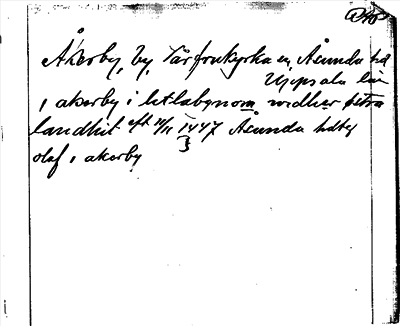 Åkerby, by, Vårfrukyrka sn, Åsunda hd
Uppsala län
i akerby i litlabynom widher
landhit eft 11/11 1447 Åsunda hdtg
olaf i akerby